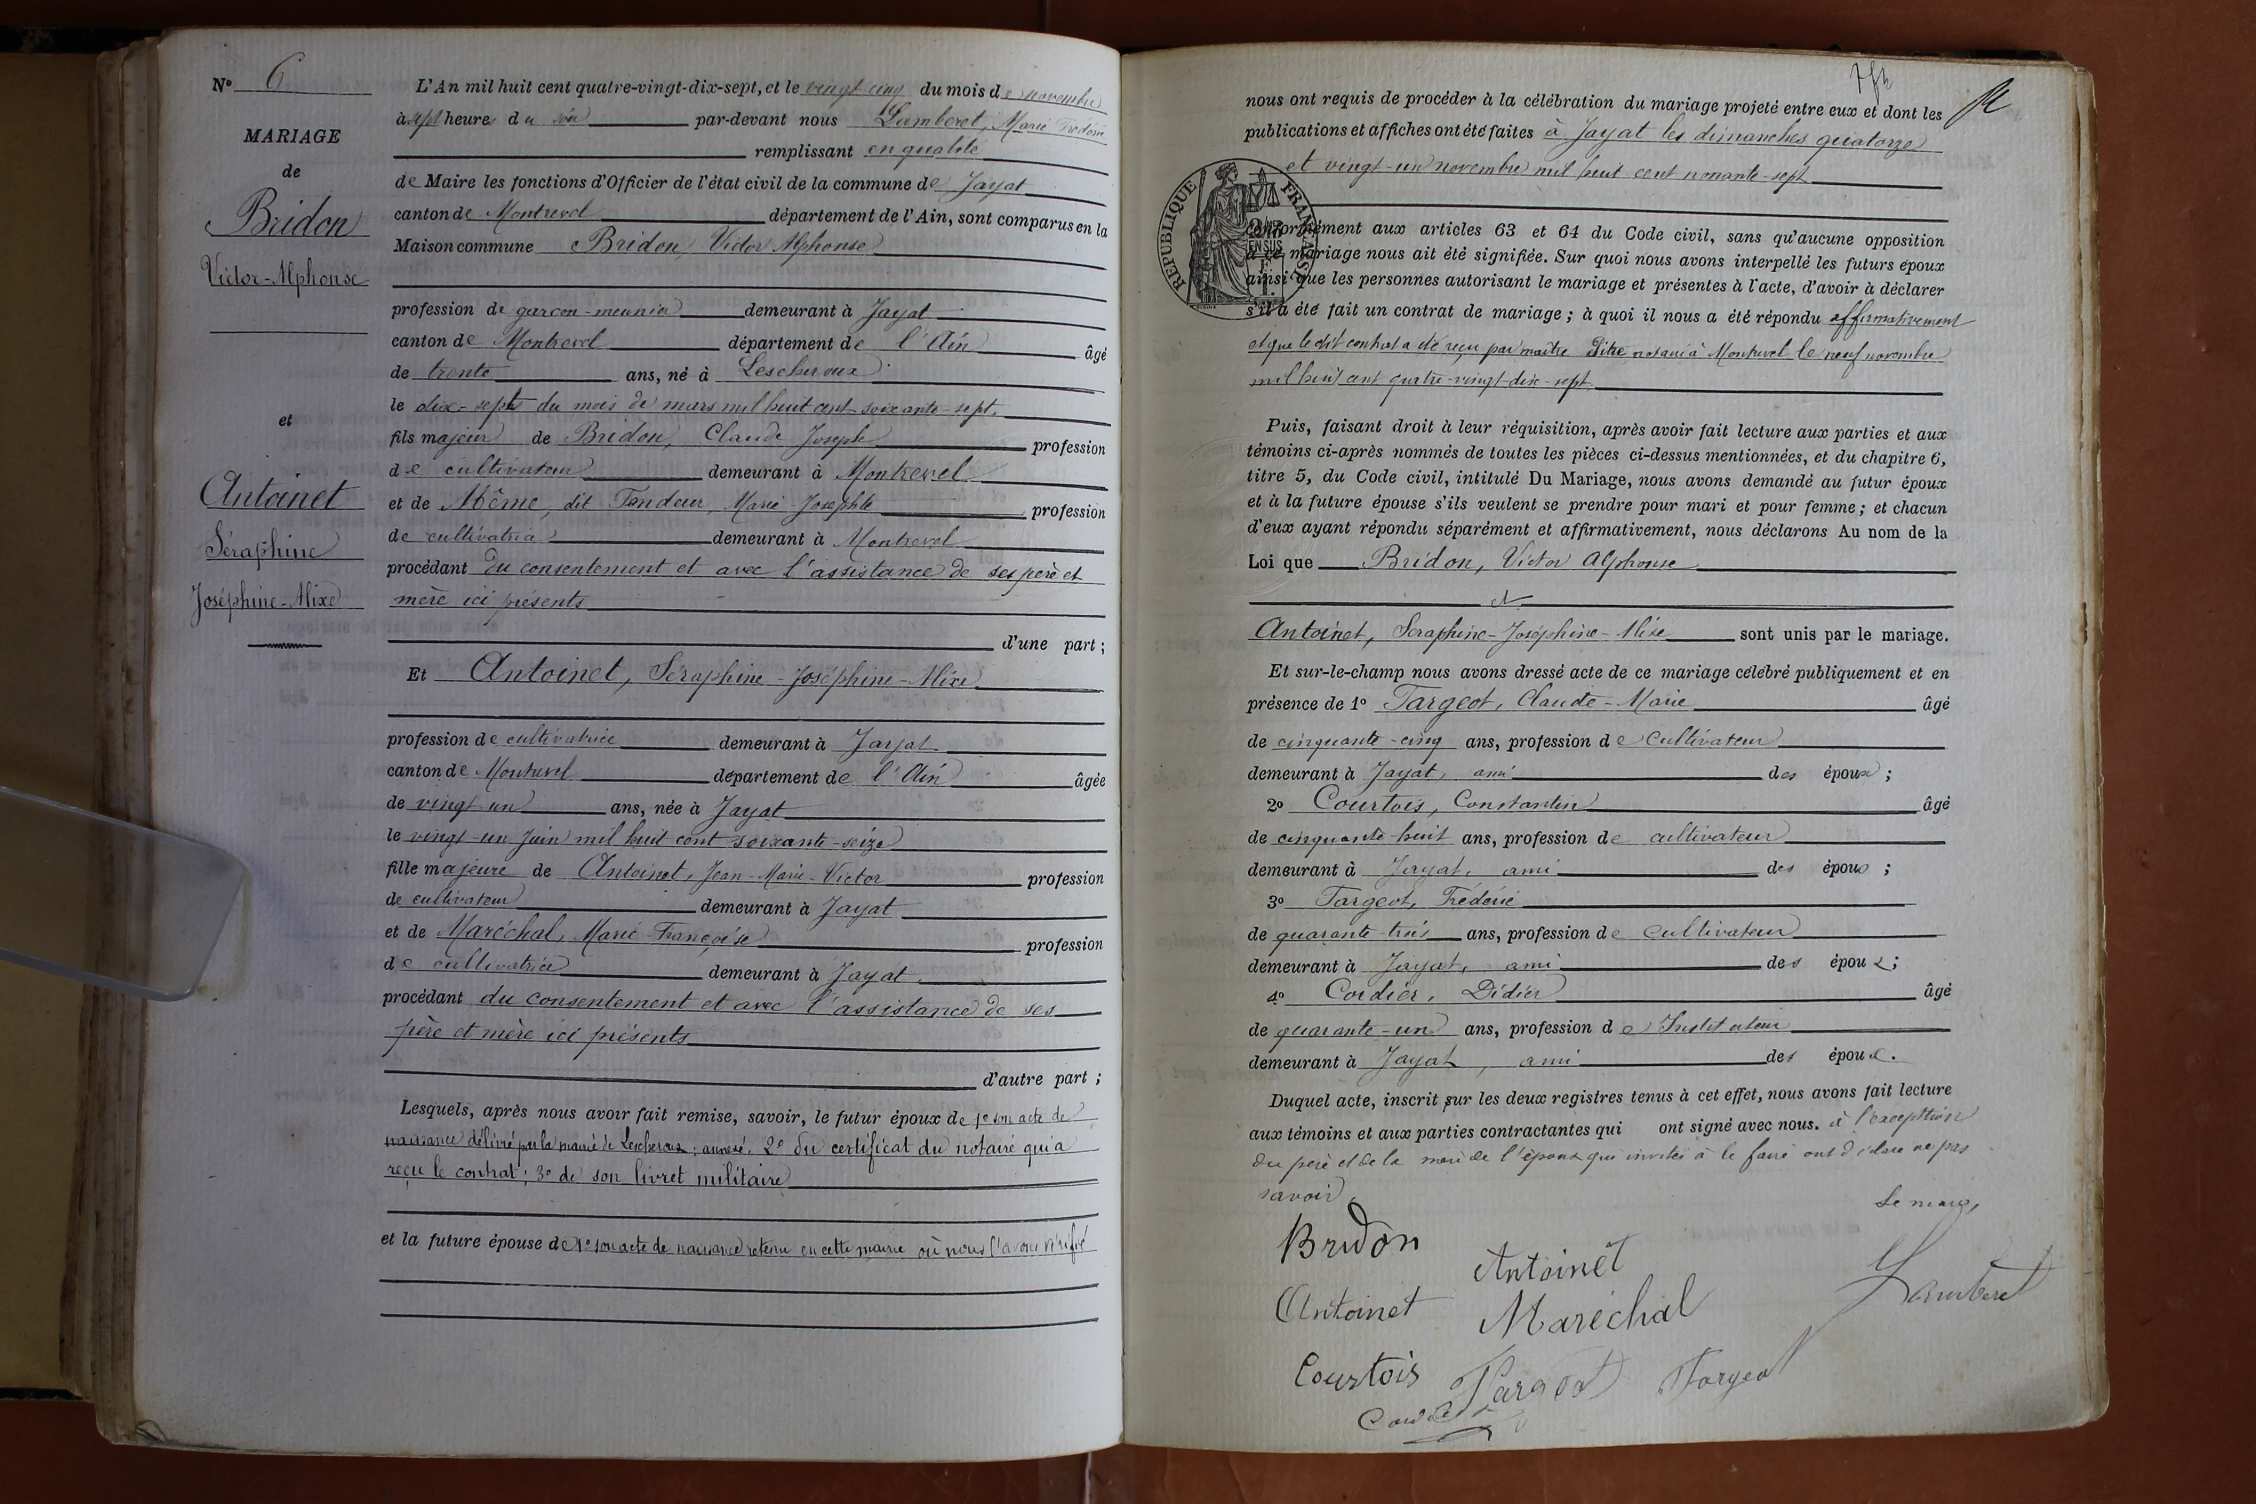 N° 6
MARIAGE
de
Bridon
Victor-Alphonse
et
Antoinet
Séraphine
Joséphine-Alixe
L'An mil huit cent quatre-vingt-dix-sept, et le vingt cinq du mois de novembre
à sept heures du soir par-devant nous Lamberet, Marie Frédéric
remplissant en qualité
de Maire les fonctions d'Officier de l'état civil de la commune de Jayat
canton de Montrevel département de l'Ain, sont comparus en la
Maison commune Bridon, Victor Alphonse
profession de garçon-meunier demeurant à Jayat
canton de Montrevel département de l'Ain âgé
de trente ans, né à Lescheroux
le dix-sept du mois de mars mil huit cent soixante-sept.
fils majeur de Bridon, Claude Joseph profession
de cultivateur demeurant à Montrevel
et de Même, dit Tondeur, Marie Josephte profession
de cultivatrice demeurant à Montrevel
procédant du consentement et avec l'assistance de ses père et
mère ici présents
d'une part ;
Et Antoinet, Séraphine-Joséphine-Alixe
profession de cultivatrice demeurant à Jayat
canton de Montrevel département de l'Ain âgée
de vingt-un ans, née à Jayat
le vingt-un Juin mil huit cent soixante-seize
fille majeure de Antoinet, Jean-Marie-Victor profession
de cultivateur demeurant à Jayat
et de Maréchal, Marie Françoise profession
de cultivatrice demeurant à Jayat
procédant du consentement et avec l'assistance de ses
père et mère ici présents
d'autre part ;
Lesquels, après nous avoir fait remise, savoir, le futur époux de 1° son acte de
naissance délivré par la mairie de Lescheroux ; annexé. 2° du certificat du notaire qui a
reçu le contrat ; 3° de son livret militaire
et la future épouse de 1° son acte de naissance retenu en cette mairie où nous l'avons vérifié
nous ont requis de procéder à la célébration du mariage projeté entre eux et dont les
publications et affiches ont été faites à Jayat les dimanches quatorze
et vingt-un novembre mil huit cent nonante-sept
RÉPUBLIQUE FRANÇAISE
EN SUS
conformément aux articles 63 et 64 du Code civil, sans qu'aucune opposition
à ce mariage nous ait été signifiée. Sur quoi nous avons interpellé les futurs époux
ainsi que les personnes autorisant le mariage et présentes à l'acte, d'avoir à déclarer
s'il a été fait un contrat de mariage ; à quoi il nous a été répondu affirmativement
et que le dit contrat a été reçu par maître Pitre notaire à Montrevel le neuf novembre
mil huit cent quatre-vingt-dix-sept.
Puis, faisant droit à leur réquisition, après avoir fait lecture aux parties et aux
témoins ci-après nommés de toutes les pièces ci-dessus mentionnées, et du chapitre 6,
titre 5, du Code civil, intitulé Du Mariage, nous avons demandé au futur époux
et à la future épouse s'ils veulent se prendre pour mari et pour femme ; et chacun
d'eux ayant répondu séparément et affirmativement, nous déclarons Au nom de la
Loi que Bridon, Victor Alphonse
et
Antoinet, Séraphine-Joséphine-Alixe sont unis par le mariage.
Et sur-le-champ nous avons dressé acte de ce mariage célébré publiquement et en
présence de 1° Targeot, Claude-Marie âgé
de cinquante-cinq ans, profession de cultivateur
demeurant à Jayat, ami des époux ;
2° Courtois, Constantin âgé
de cinquante-huit ans, profession de cultivateur
demeurant à Jayat, ami des époux ;
3° Targeot, Frédéric
de quarante-trois ans, profession de cultivateur
demeurant à Jayat, ami des époux ;
4° Cordier, Didier âgé
de quarante-un ans, profession de Instituteur
demeurant à Jayat, ami des époux.
Duquel acte, inscrit sur les deux registres tenus à cet effet, nous avons fait lecture
aux témoins et aux parties contractantes qui ont signé avec nous. à l'exception
du père et de la mère de l'époux qui invités à le faire ont déclaré ne pas
savoir.
Le maire,
Bridon
Antoinet
Lamberet
Antoinet
Maréchal
Courtois
Targeot
Targeot
Cordier